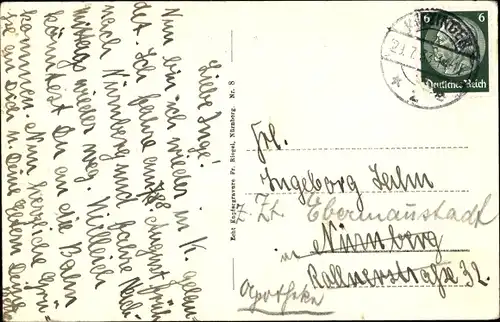 Liebe Inge!
Nun bin ich wieder in K. gelan-
det. Ich fahre August früh
nach Nürnberg und fahre
mittags wieder weg. Vielleicht
könntest Du an die Bahn
kommen. Nun herzliche Grü-
ße an Dich u. Deine Eltern Deine
Echt Kupfergravure Fr. Riegel, Nürnberg. Nr. 8
6 6
Deutsches Reich
Frl.
Ingeborg
z. Zt. Ebermannstadt
in Nürnberg
Rollnerstraße 32.
Apotheke